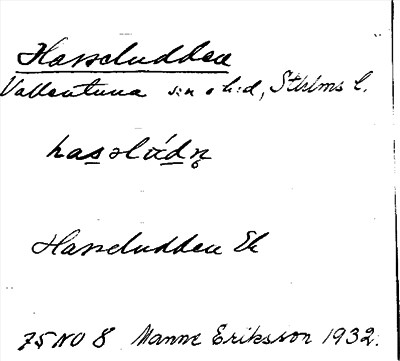 Hasseludden
Vallentuna s:n o h:d, Sthlms l.
hasəlɷ́dn̥
Hasseludden Ek
75 NO 8 Manne Eriksson 1932.